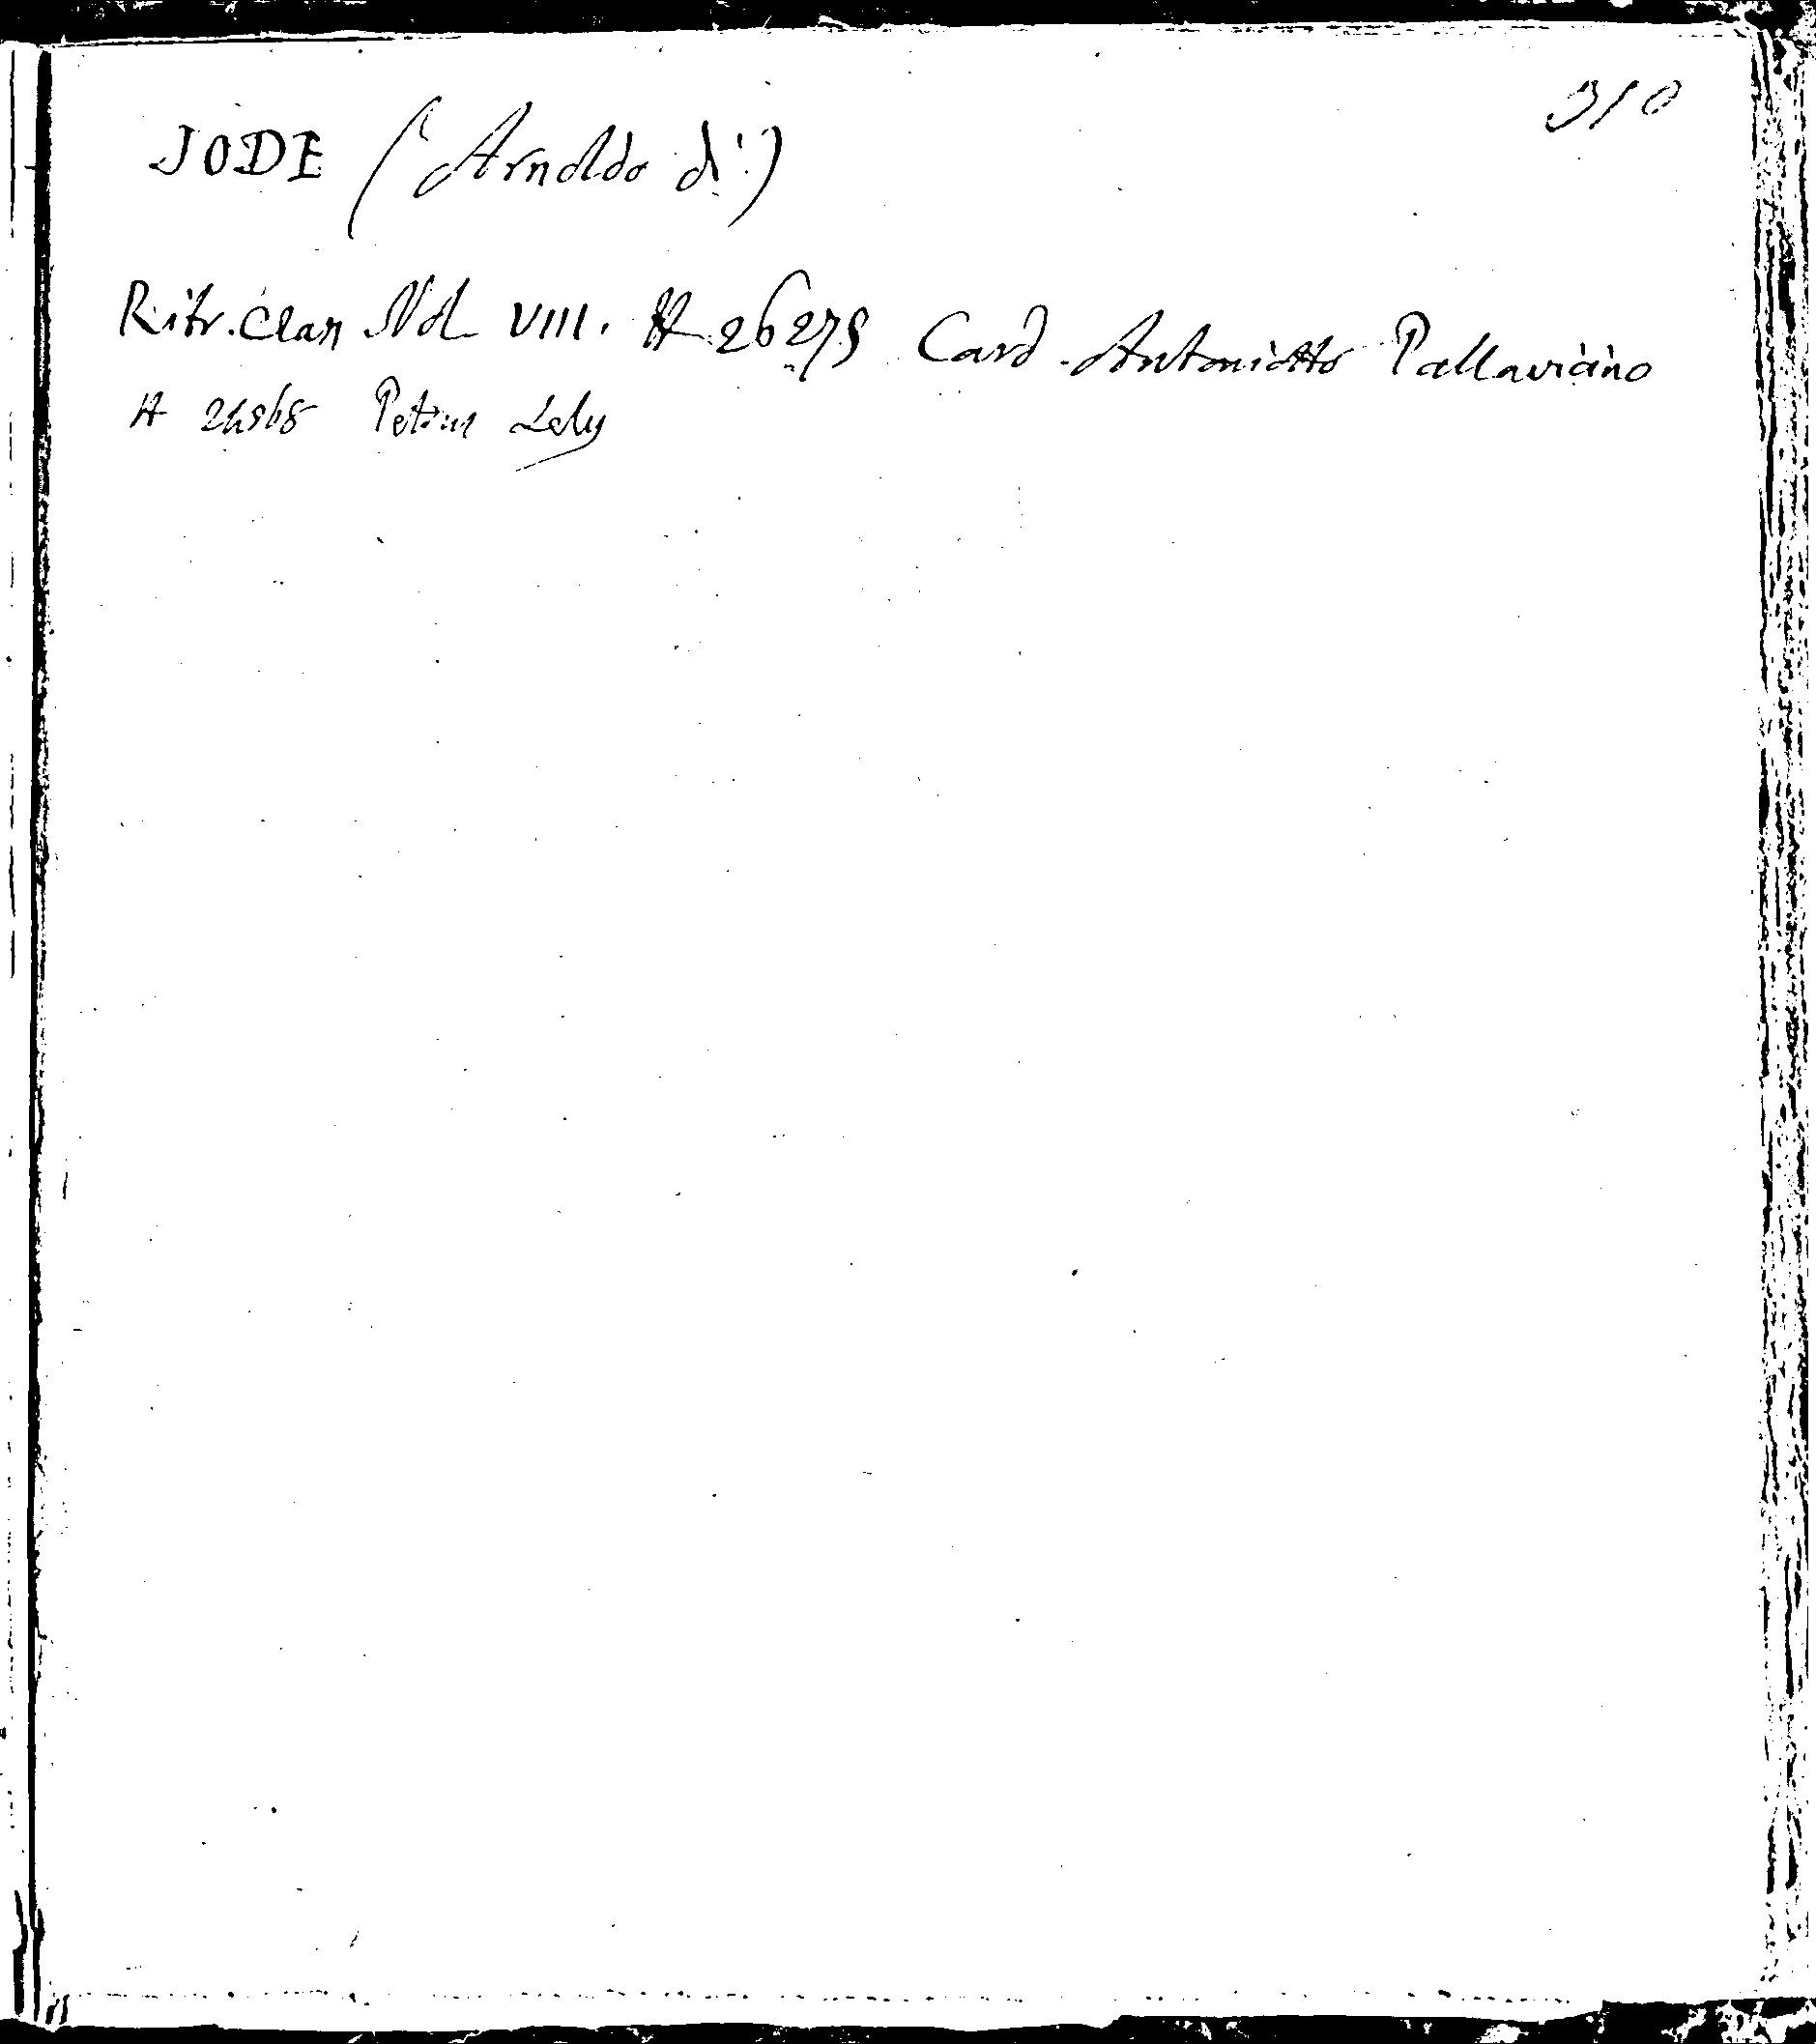 310
JODE (Arnoldo di)
Ritr. Class Vol VIII. A 26275 Card. Antoniotto Pallavicino
A 24568 Petrus Lely